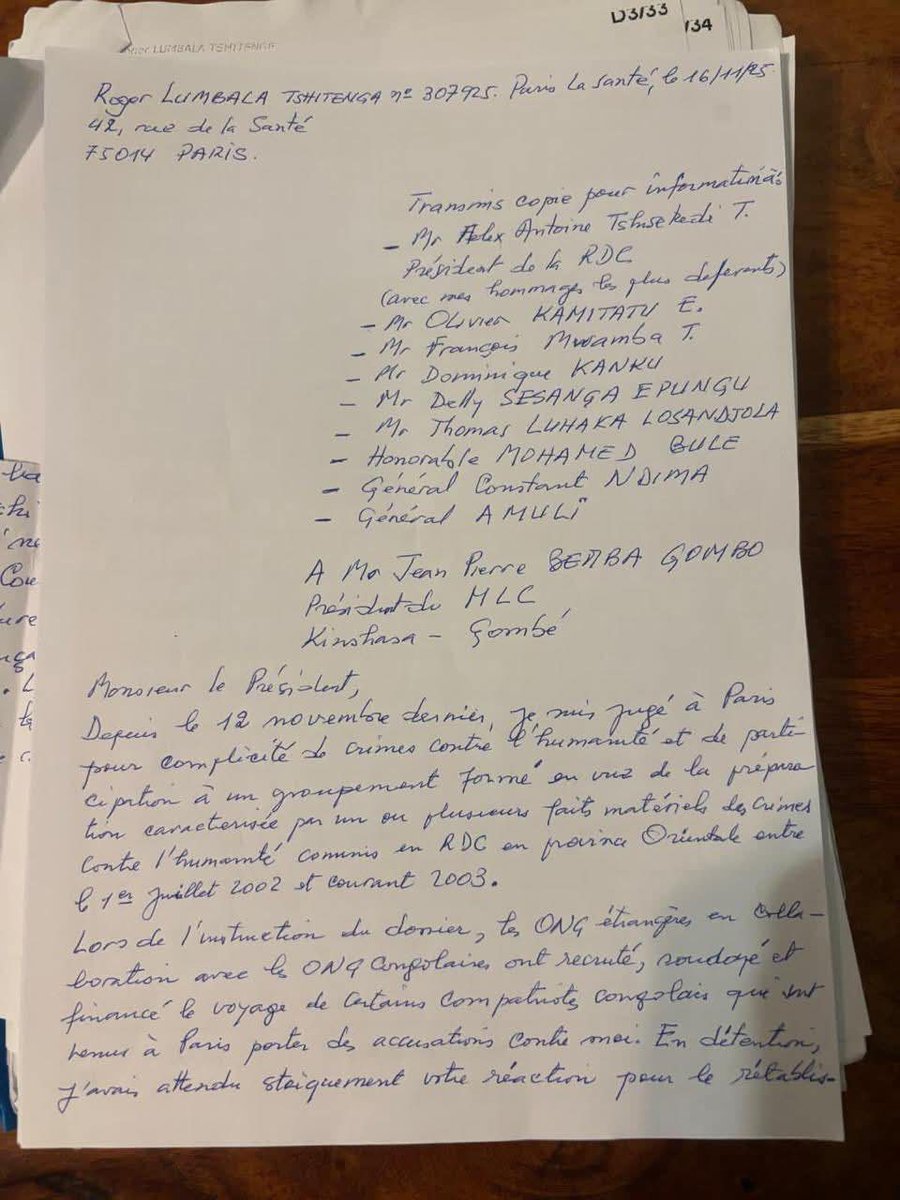 D3/33
/34
LUMBALA TSHITENGE
Roger LUMBALA TSHITENGA nº 307925. Paris La Santé, le 16/11/25
42, rue de la Santé
75014 PARIS.
Transmis copie pour information à:
- Mr Felix Antoine Tshisekedi T.
Président de la RDC
(avec mes hommages les plus deferents)
- Mr Olivier KAMITATU E.
- Mr François Mwamba T.
- Mr Dominique KANKU
- Mr Delly SESANGA EPUNGU
- Mr Thomas LUHAKA LOSANDJOLA
- Honorable MOHAMED BULE
- Général Constant NDIMA
- Général AMULI
A Mr Jean Pierre BEMBA GOMBO
Président du MLC
Kinshasa - Gombé
Monsieur le Président,
Depuis le 12 novembre dernier, je suis jugé à Paris
pour complicité de crimes contre l'humanité et de parti-
cipation à un groupement formé en vue de la prépara
tion caractérisée par un ou plusieurs faits matériels des crimes
contre l'humanité commis en RDC en province Orientale entre
le 1er Juillet 2002 et courant 2003.
Lors de l'instruction du dossier, les ONG étrangères en colla-
boration avec les ONG Congolaises ont recruté, soudoyé et
financé le voyage de certains compatriotes congolais qui sont
venus à Paris porter des accusations contre moi. En détention,
j'avais attendu stoiquement votre réaction pour le rétablis-